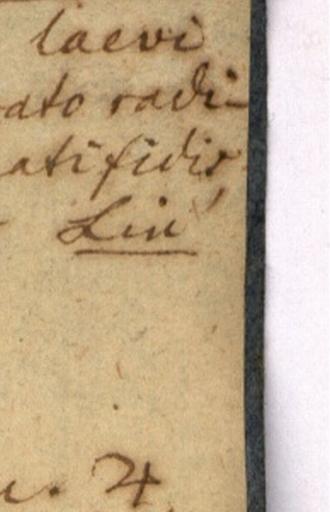 laevi
ato radi-
atifidis,
Lin'
. ♃